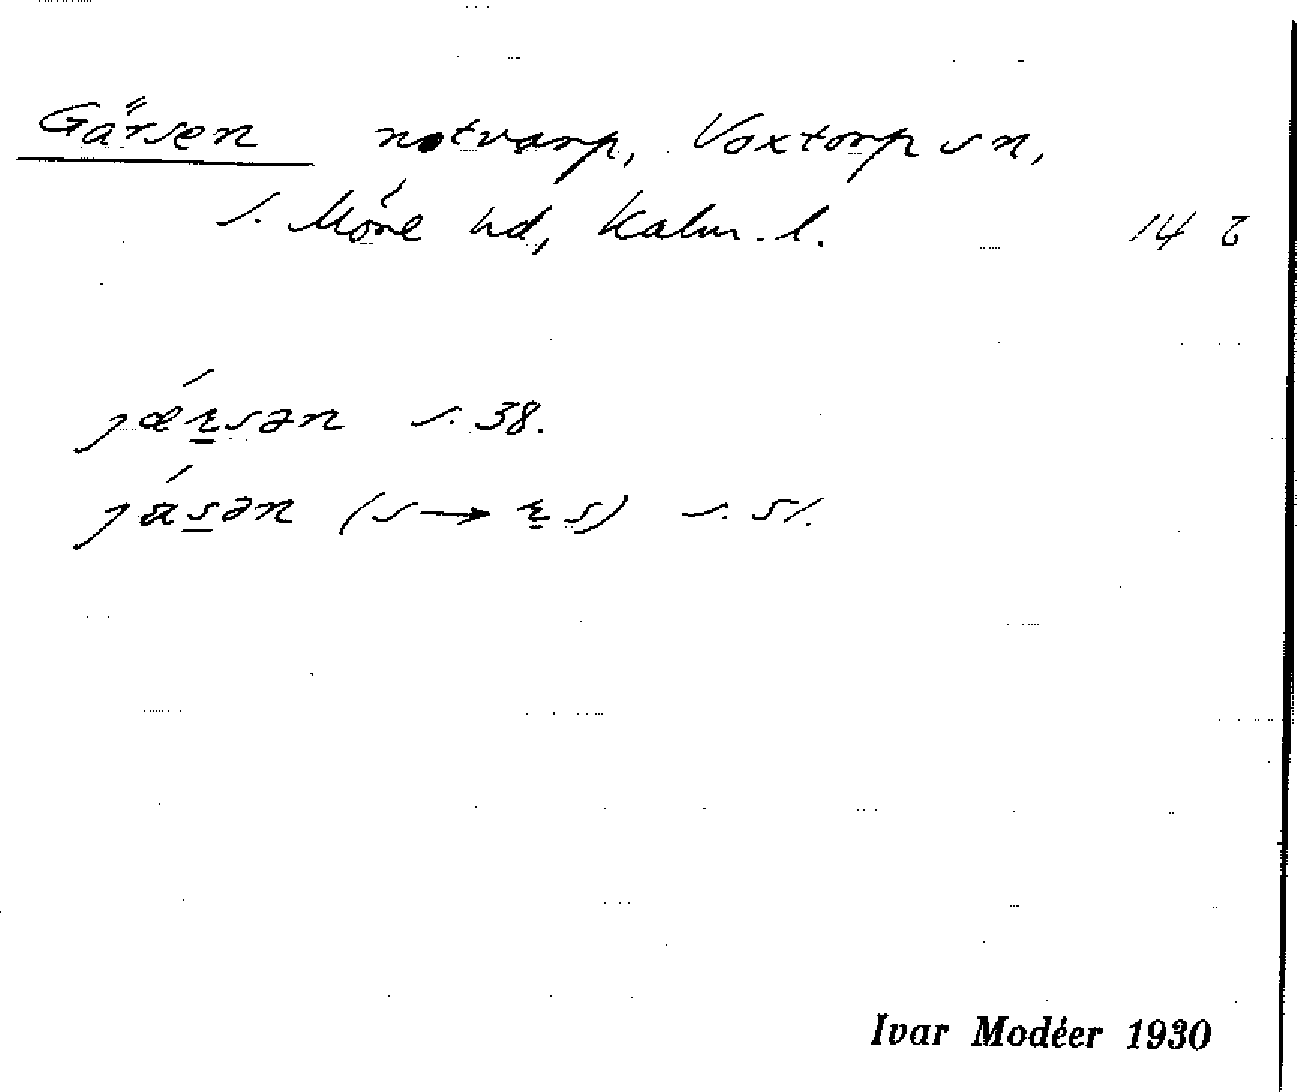 Gärsen notvarp, Voxtorp sn,
s. Möre hd, Kalm. l. 14 
jæ´rsən s. 38.
já̤sən (s → rs) s. 51.
Ivar Modéer 1930